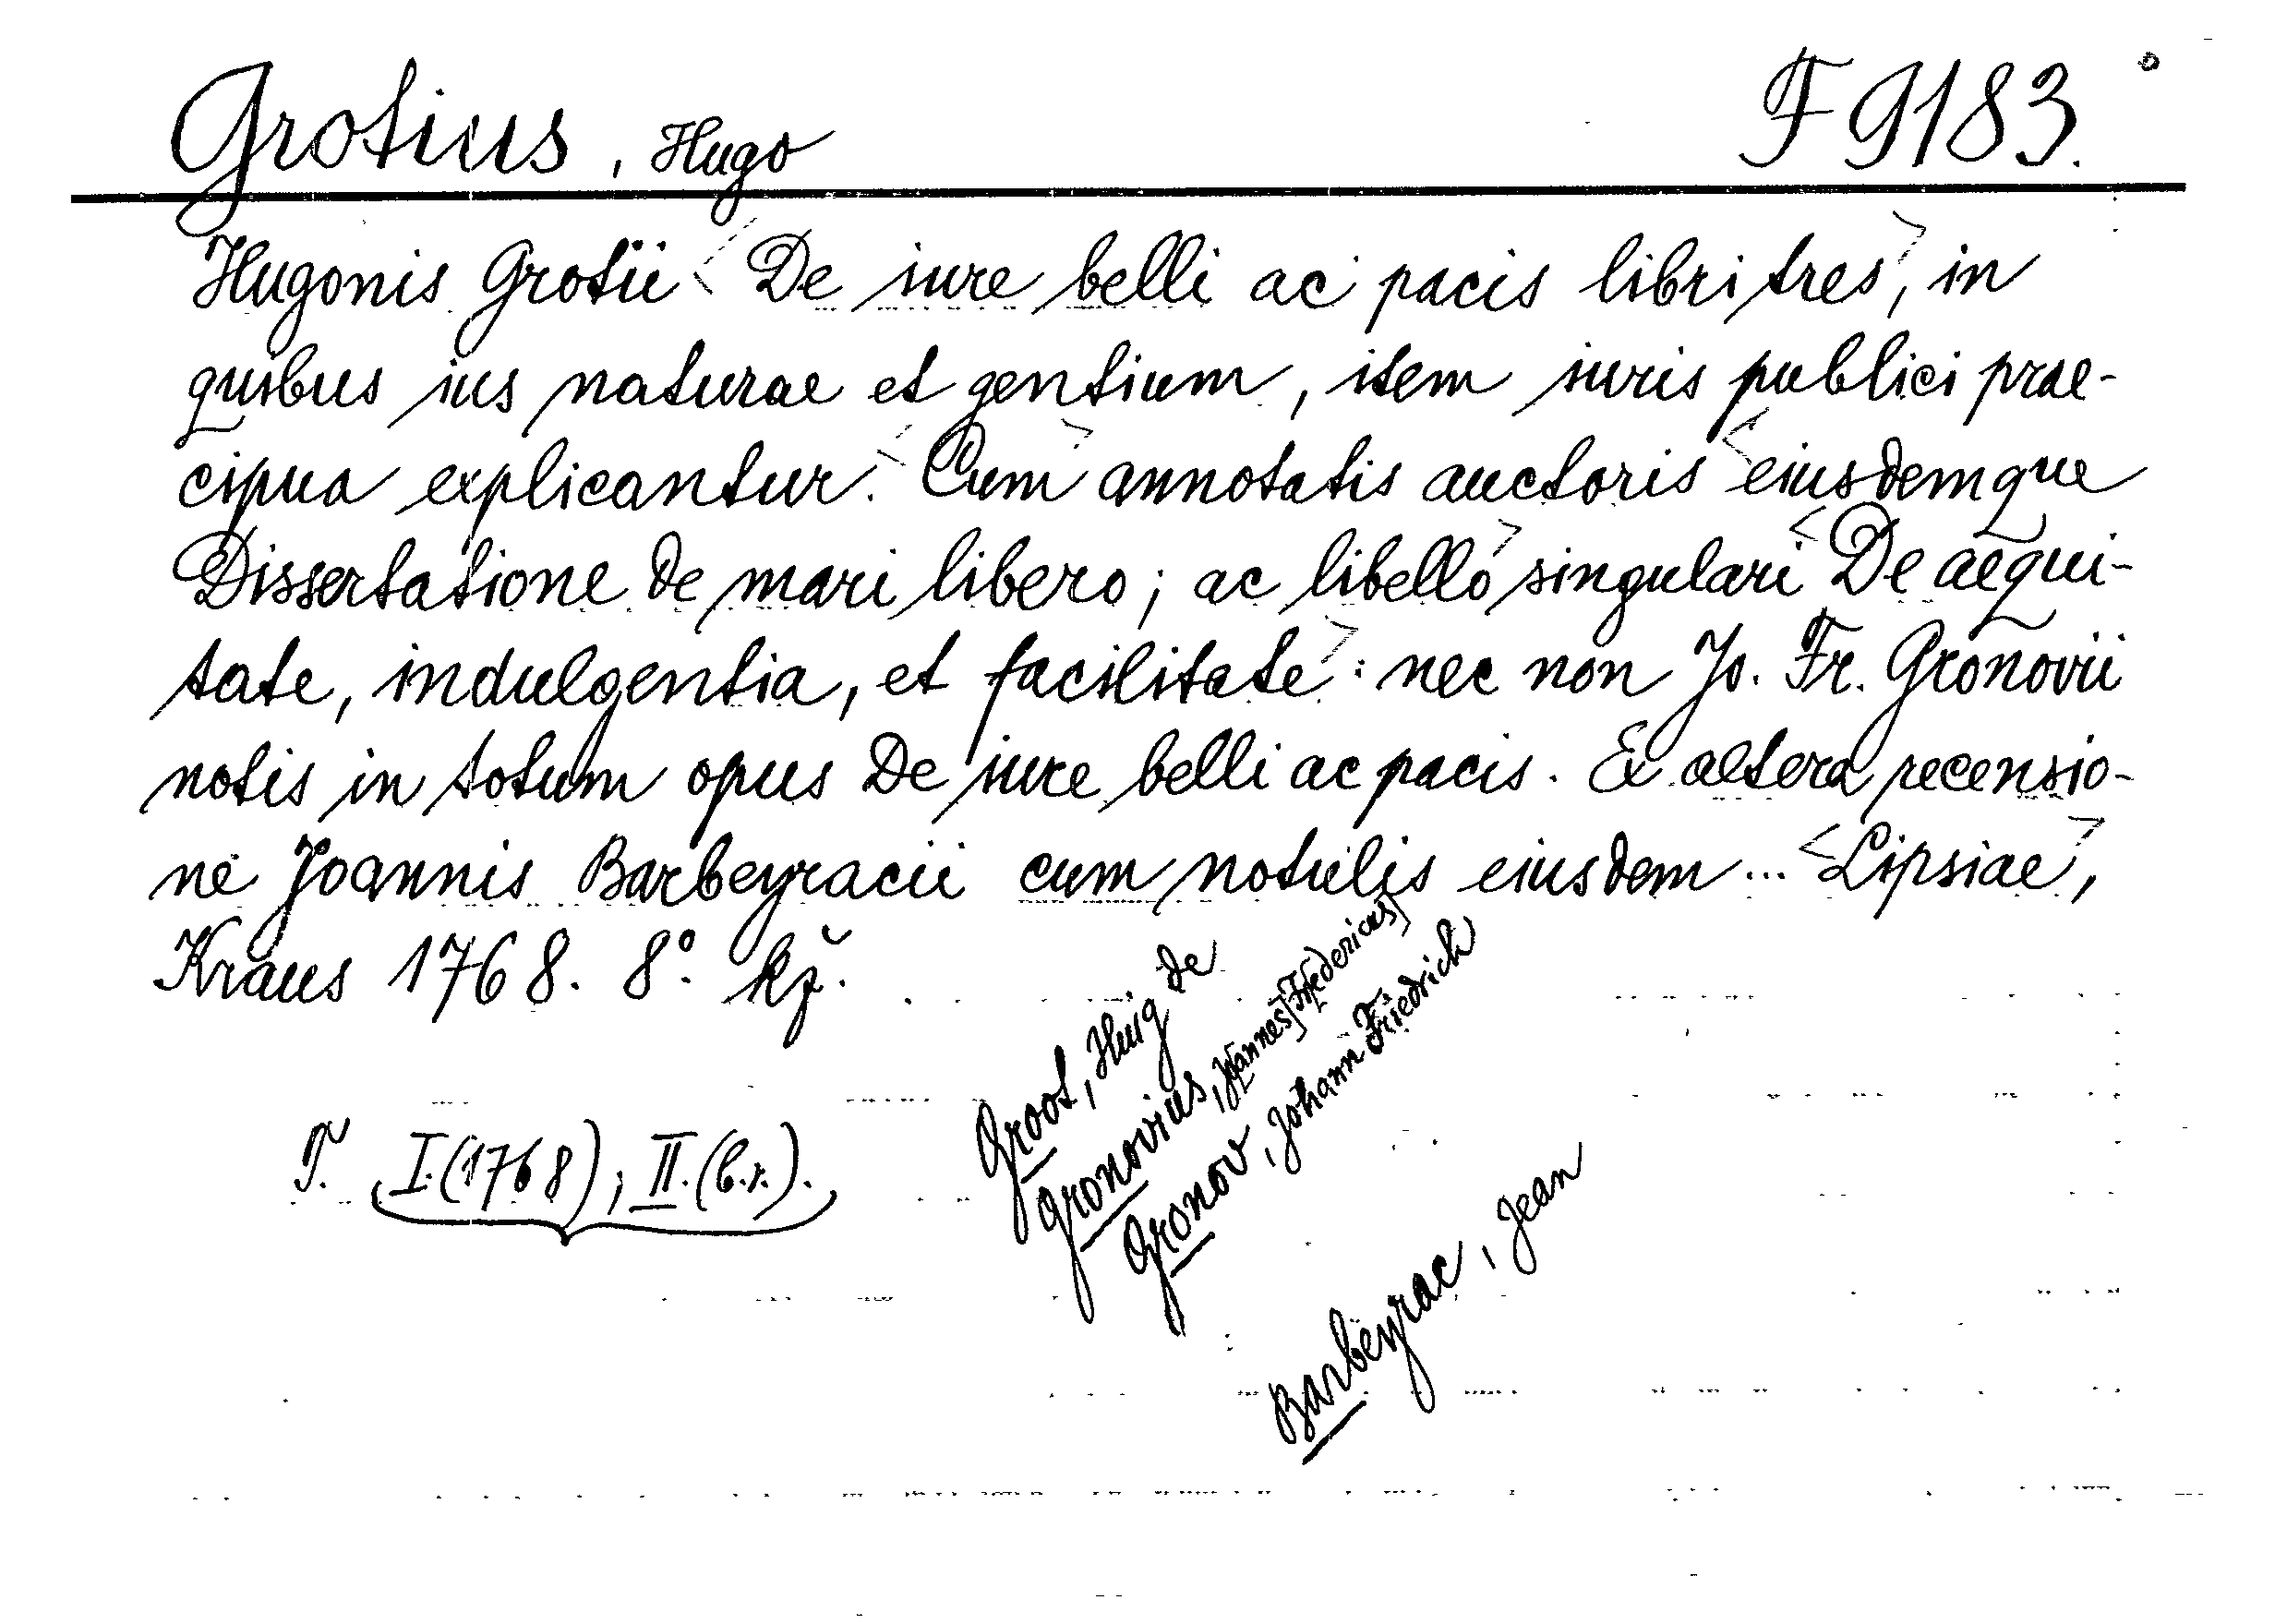 Grotius, Hugo F 9183.
Hugonis Grotii <De iure belli ac pacis libri tres>, in
quibus ius naturae et gentium, item iuris publici prae-
cipua explicantur. <Cum> annotatis auctoris <eiusdemque
Dissertatione de mari libero; ac libello> singulari <De aequi-
tate, indulgentia, et facilitate>: nec non Jo. Fr. Gronovii
notis in totum opus De iure belli ac pacis. Ex altera recensio-
ne Joannis Barbeyracii cum notulis eiusdem ... <Lipsiae>,
Kraus 1768. 8°. kž.
T. I.(1768), II.(b.r.).
Groot, Huig de
Gronovius, Joannes Fredericus
Gronov, Johann Friedrich
Barbeyrac, Jean